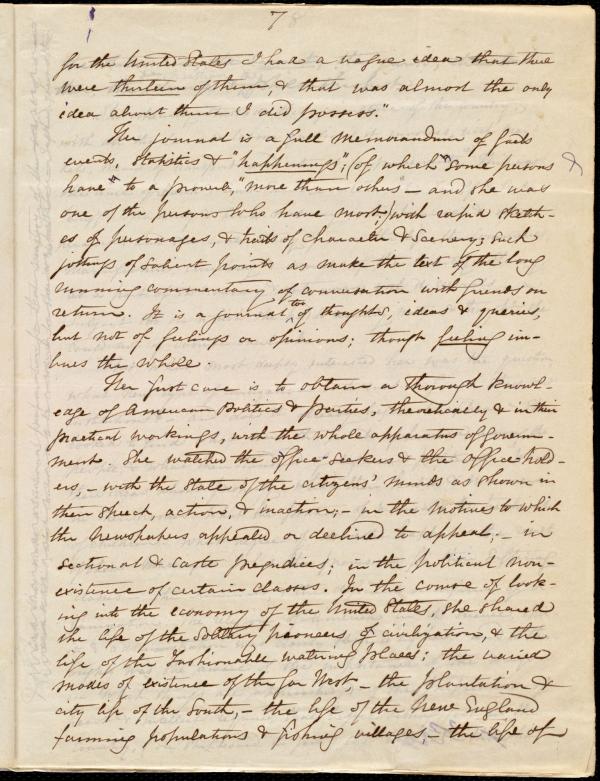 78
for the United States I had a vague idea that there
were thirteen of them, & that was almost the only
idea about them I did possess."
Her journal is a full memorandum of facts
events, statistics & "happenings"; (of which "some persons &
have" to a proverb, "more than others" – and she was
one of the persons who have most;) with rapid sketch-
es of personages, & traits of character & scenery; such
jottings of salient points as make the text of the long
running commentary of conversation with friends on
return. It is a journal of thoughts, ideas & queries,
but not of feelings or opinions; though feeling im-
bues the whole.
Her first care is to obtain a thorough knowl-
edge of American Politics & parties, theoretically & in their
practical workings, with the whole apparatus of Govern-
ment. She watched the office-seekers & the office-hold-
ers, – with the state of the citizens' minds as shown in
their speech, action, & inaction; – in the motives to which
the newspapers appealed or declined to appeal; – in
sectional & caste prejudices; in the political non-
existence of certain classes. In the course of look-
ing into the economy of the United States, she shared
the life of the solitary pioneers of civilization, & the
life of the fashionable watering places; the varied
modes of existence of the far West, – the plantation &
city life of the South, – the life of the New England
farming populations & fishing villages, – the life of